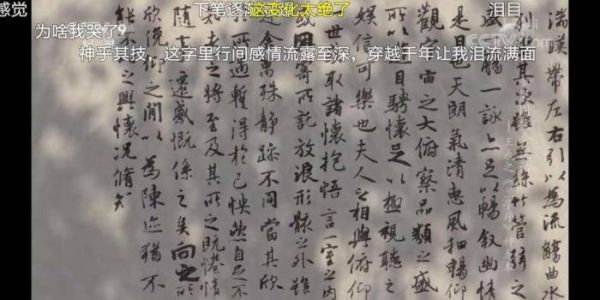 感觉
这变化太绝了
泪目
为啥我哭了?
神乎其技，这字里行间感情流露至深，穿越千年让我泪流满面
CCTV
湍暎帶左右引以為流觴曲水
列坐其次雖無絲竹管弦之
盛一觴一詠亦足以暢敘幽情
是日也天朗氣清惠風和暢仰
觀宇宙之大俯察品類之盛
所以遊目騁懷足以極視聽之
娛信可樂也夫人之相與俯仰
世或取諸懷抱悟言一室之內
因寄所託放浪形骸之外雖
舍萬殊靜躁不同當其欣
所遇暫得於己怏然自足不
老之將至及其所之既惓情
隨事遷感慨係之矣向之所
欣俛仰之間以為陳迹猶不
之興懷況脩短